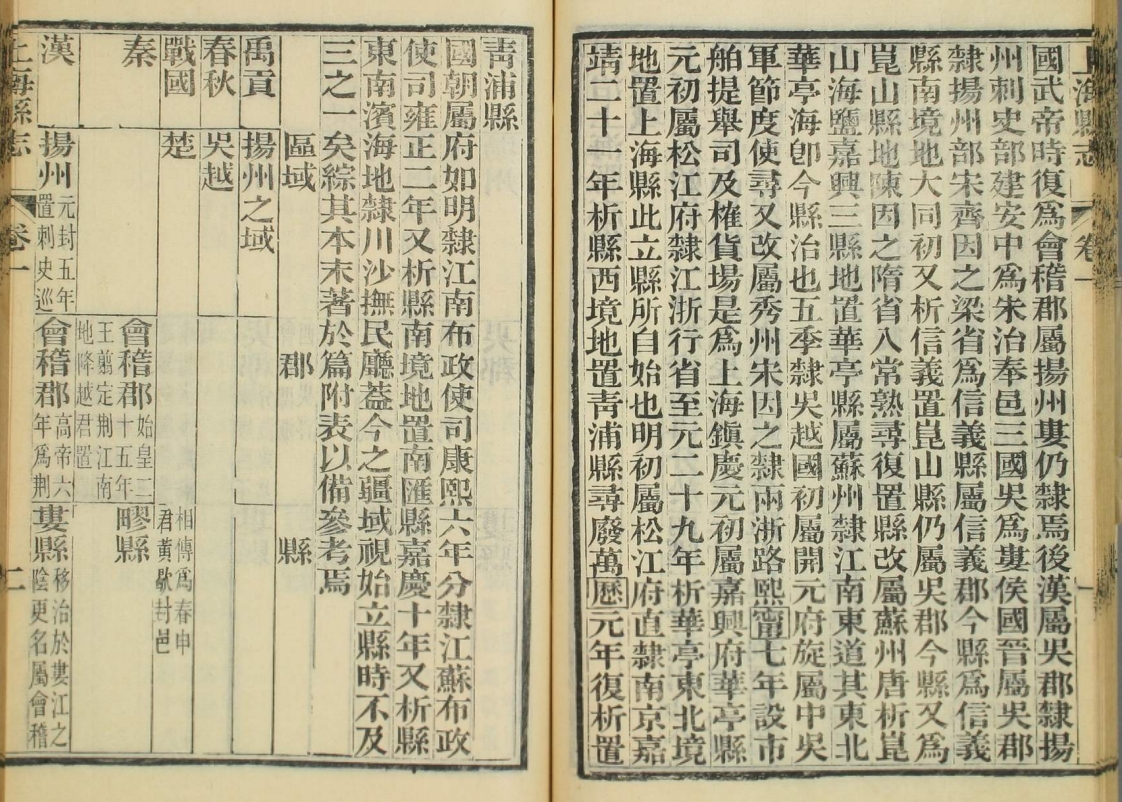 上海縣志 卷一 一
國武帝時復爲會稽郡屬揚州婁仍隸焉後漢屬吳郡隸揚
州刺史部建安中爲朱治奉邑三國吳爲婁侯國晉屬吳郡
隸揚州部宋齊因之梁省爲信義縣屬信義郡今縣爲信義
縣南境地大同初又析信義置崑山縣仍屬吳郡今縣又爲
崑山縣地陳因之隋省入常熟尋復置縣改屬蘇州唐析崑
山海鹽嘉興三縣地置華亭縣屬蘇州隸江南東道其東北
華亭海卽今縣治也五季隸吳越國初屬開元府旋屬中吳
軍節度使尋又改屬秀州宋因之隸兩浙路熙甯七年設市
舶提舉司及榷貨場是爲上海鎭慶元初屬嘉興府華亭縣
元初屬松江府隸江浙行省至元二十九年析華亭東北境
地置上海縣此立縣所自始也明初屬松江府直隸南京嘉
靖二十一年析縣西境地置靑浦縣尋廢萬歷元年復析置
靑浦縣
國朝屬府如明隸江南布政使司康熙六年分隸江蘇布政
使司雍正二年又析縣南境地置南匯縣嘉慶十年又析縣
東南濱海地隸川沙撫民廳蓋今之疆域視始立縣時不及
三之一矣綜其本末著於篇附表以備參考焉
區域 郡 縣
禹貢 揚州之域
春秋 吳越
戰國 楚 相傳爲春申
君黃歇封邑
秦 會稽郡 始皇二
十五年
王翦定荆江南
地降越君置 疁縣
漢 揚州 元封五年
置刺史巡 會稽郡 高帝六
年爲荆 婁縣 移治於婁江之
陰更名屬會稽
上海縣志 卷一 二